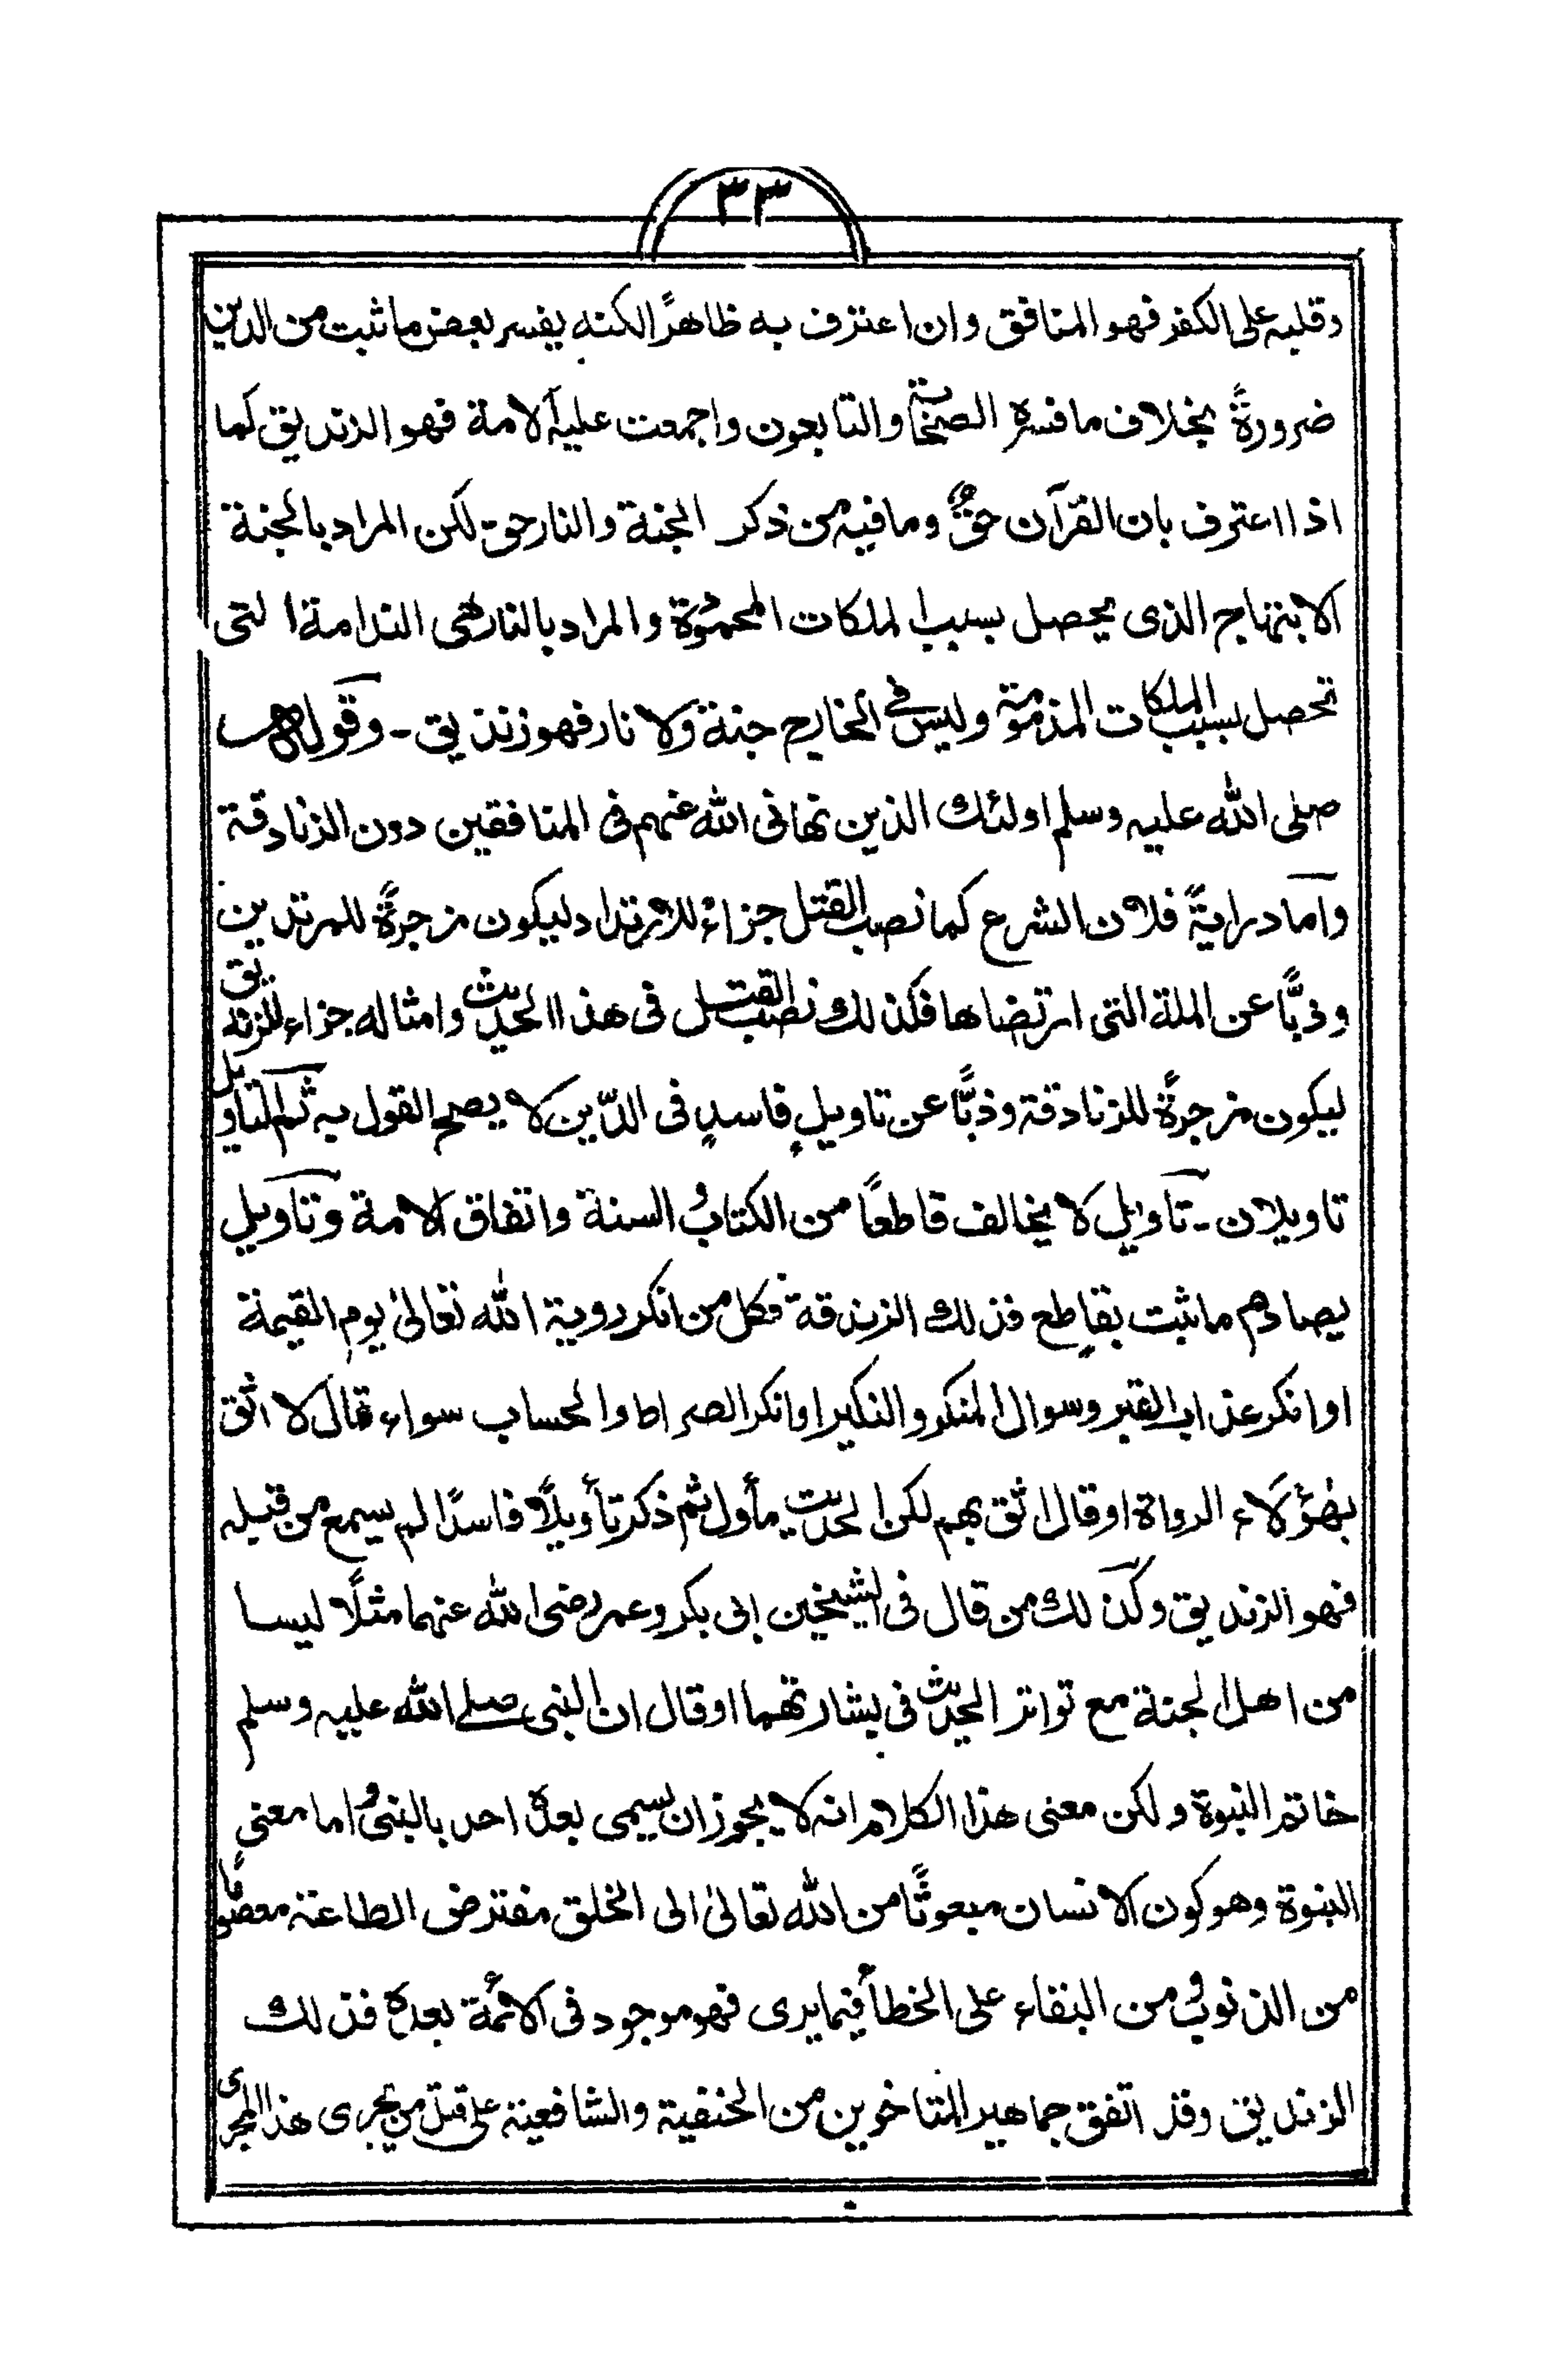 ٣٣
وقلبه على الكفر فهو المنافق وان اعترف به ظاهرًا لكنه يفسر بعض ما ثبت من الدين
ضرورةً بخلاف ما فسره الصحابة والتابعون واجمعت عليه الامة فهو الزنديق كما
اذا اعترف بان القرآن حقٌ وما فيه من ذكر الجنة والنار حق لكن المراد بالجنة
الابتهاج الذى يحصل بسبب الملكات المحمودة والمراد بالنار هى الندامة التى
تحصل بسبب الملكات المذمومة وليس فى الخارج جنة ولا نار فهو زنديق ـ وقوله
صلى الله عليه وسلم اولئك الذين نهانى الله عنهم فى المنافقين دون الزنادقة
واما درايةً فلان الشرع كما نصب القتل جزاءً للارتداد ليكون مزجرةً للمرتدين
وذبًّا عن الملة التى ارتضاها فكذلك نصب القتل فى هذا الحديث وامثاله جزاء للزنديق
ليكون مزجرةً للزنادقة وذبًّا عن تاويلٍ فاسدٍ فى الدّين لا يصح القول به ثم التاويل
تاويلان ـ تاويل لا يخالف قاطعًا من الكتاب والسنة واتفاق الامة وتاويل
يصادم ما ثبت بقاطع فذلك الزندقة فكل من انكر روية الله تعالىٰ يوم القيمة
او انكر عذاب القبر وسوال المنكر والنكير او انكر الصراط والحساب سواء قال لا اثق
بهٰؤلَاء الرواة او قال اثق بهم لكن الحديث مأول ثم ذكر تأويلًا فاسدًا لم يسمع من قبله
فهو الزنديق وكذلك من قال فى الشيخين ابى بكر وعمر رضى الله عنهما مثلًا ليسا
من اهل الجنة مع تواتر الحديث فى بشارتهما او قال ان النبى صلے الله عليه وسلم
خاتم النبوة ولكن معنى هذا الكلام انه لا يجوز ان يسمى بعده احد بالنبى واما معنى
النبوة وهو كون الانسان مبعوثًا من الله تعالىٰ الى الخلق مفترض الطاعة معصومًا
من الذنوب ومن البقاء على الخطأ فيما يرى فهو موجود فى الائمة بعده فذلك
الزنديق وقد اتفق جماهير المتاخرين من الحنفية والشافعية على قتل من يجرى هذا المجرى